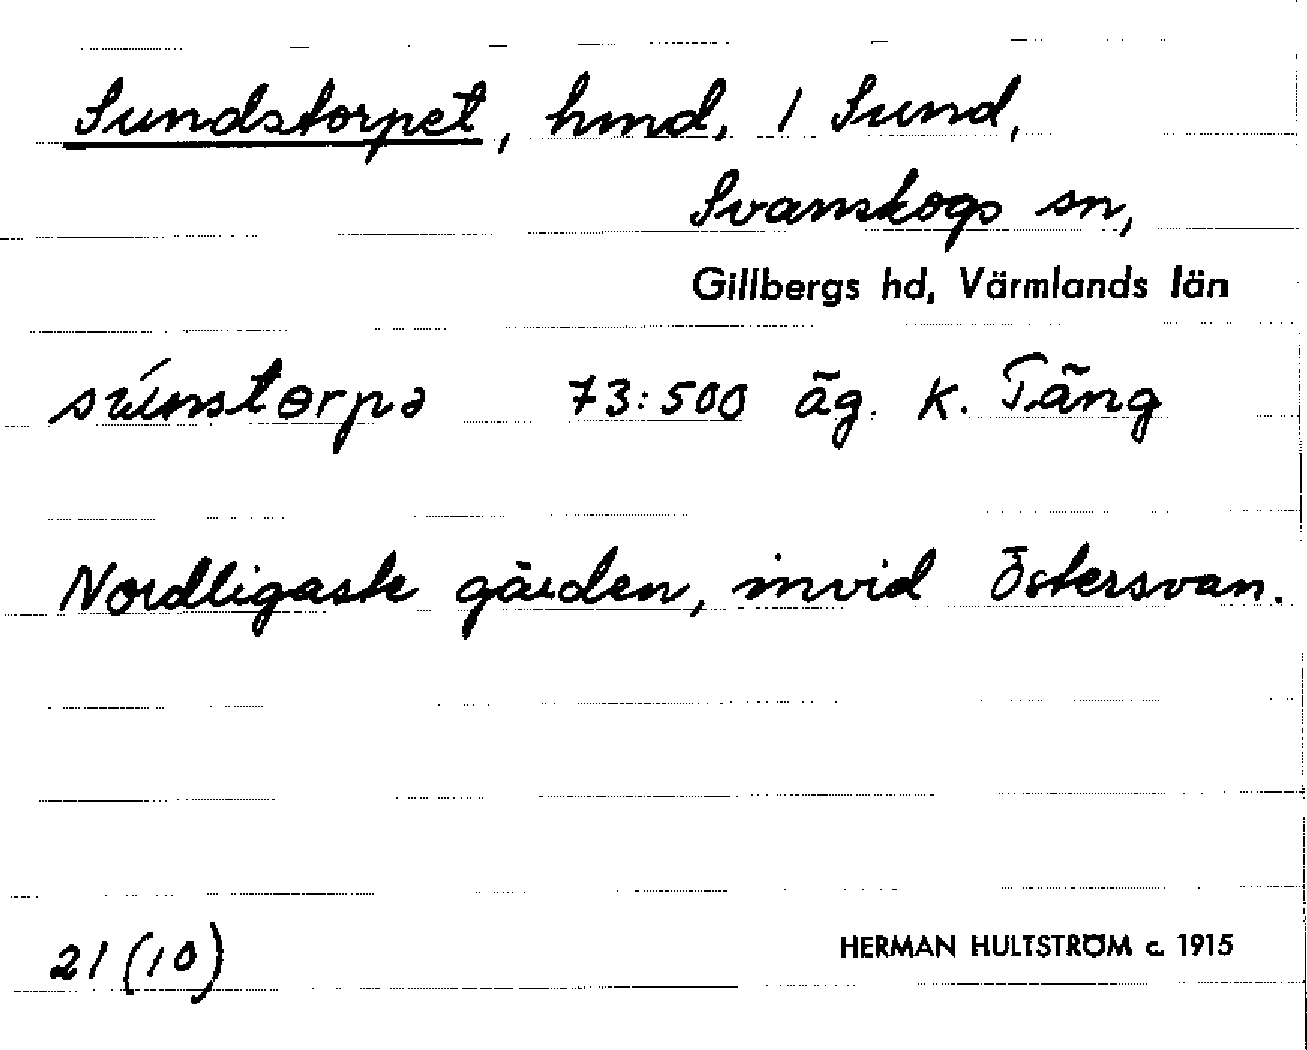 Sundstorpet, hmd, 1 Sund,
Svanskogs sn,
Gillbergs hd, Värmlands län
súnstɵrpə 73:500 äg. K. Täng
Nordligaste gården, invid Östersvan.
21 (10)
HERMAN HULTSTRÖM c. 1915